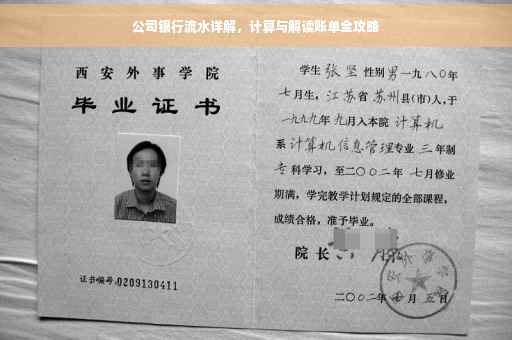 公司银行流水详解，计算与解读账单全攻略
西安外事学院
毕业证书
证书编号:0209130411
学生 张坚 性别 男 一九八〇年
七月生，江苏省 苏州 县(市)人，于
一九九九年 九月入本院 计算机
系 计算机信息管理专业 三 年制
专 科学习，至二〇〇二年 七月修业
期满，学完教学计划规定的全部课程，
成绩合格，准予毕业。
院长
二〇〇二年 七 月 五 日